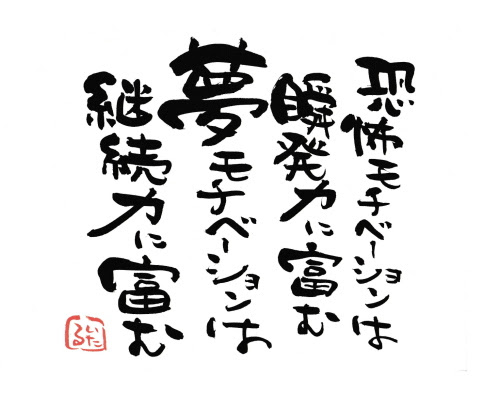 恐怖モチベーションは
瞬発力に富む
夢モチベーションは
継続力に富む